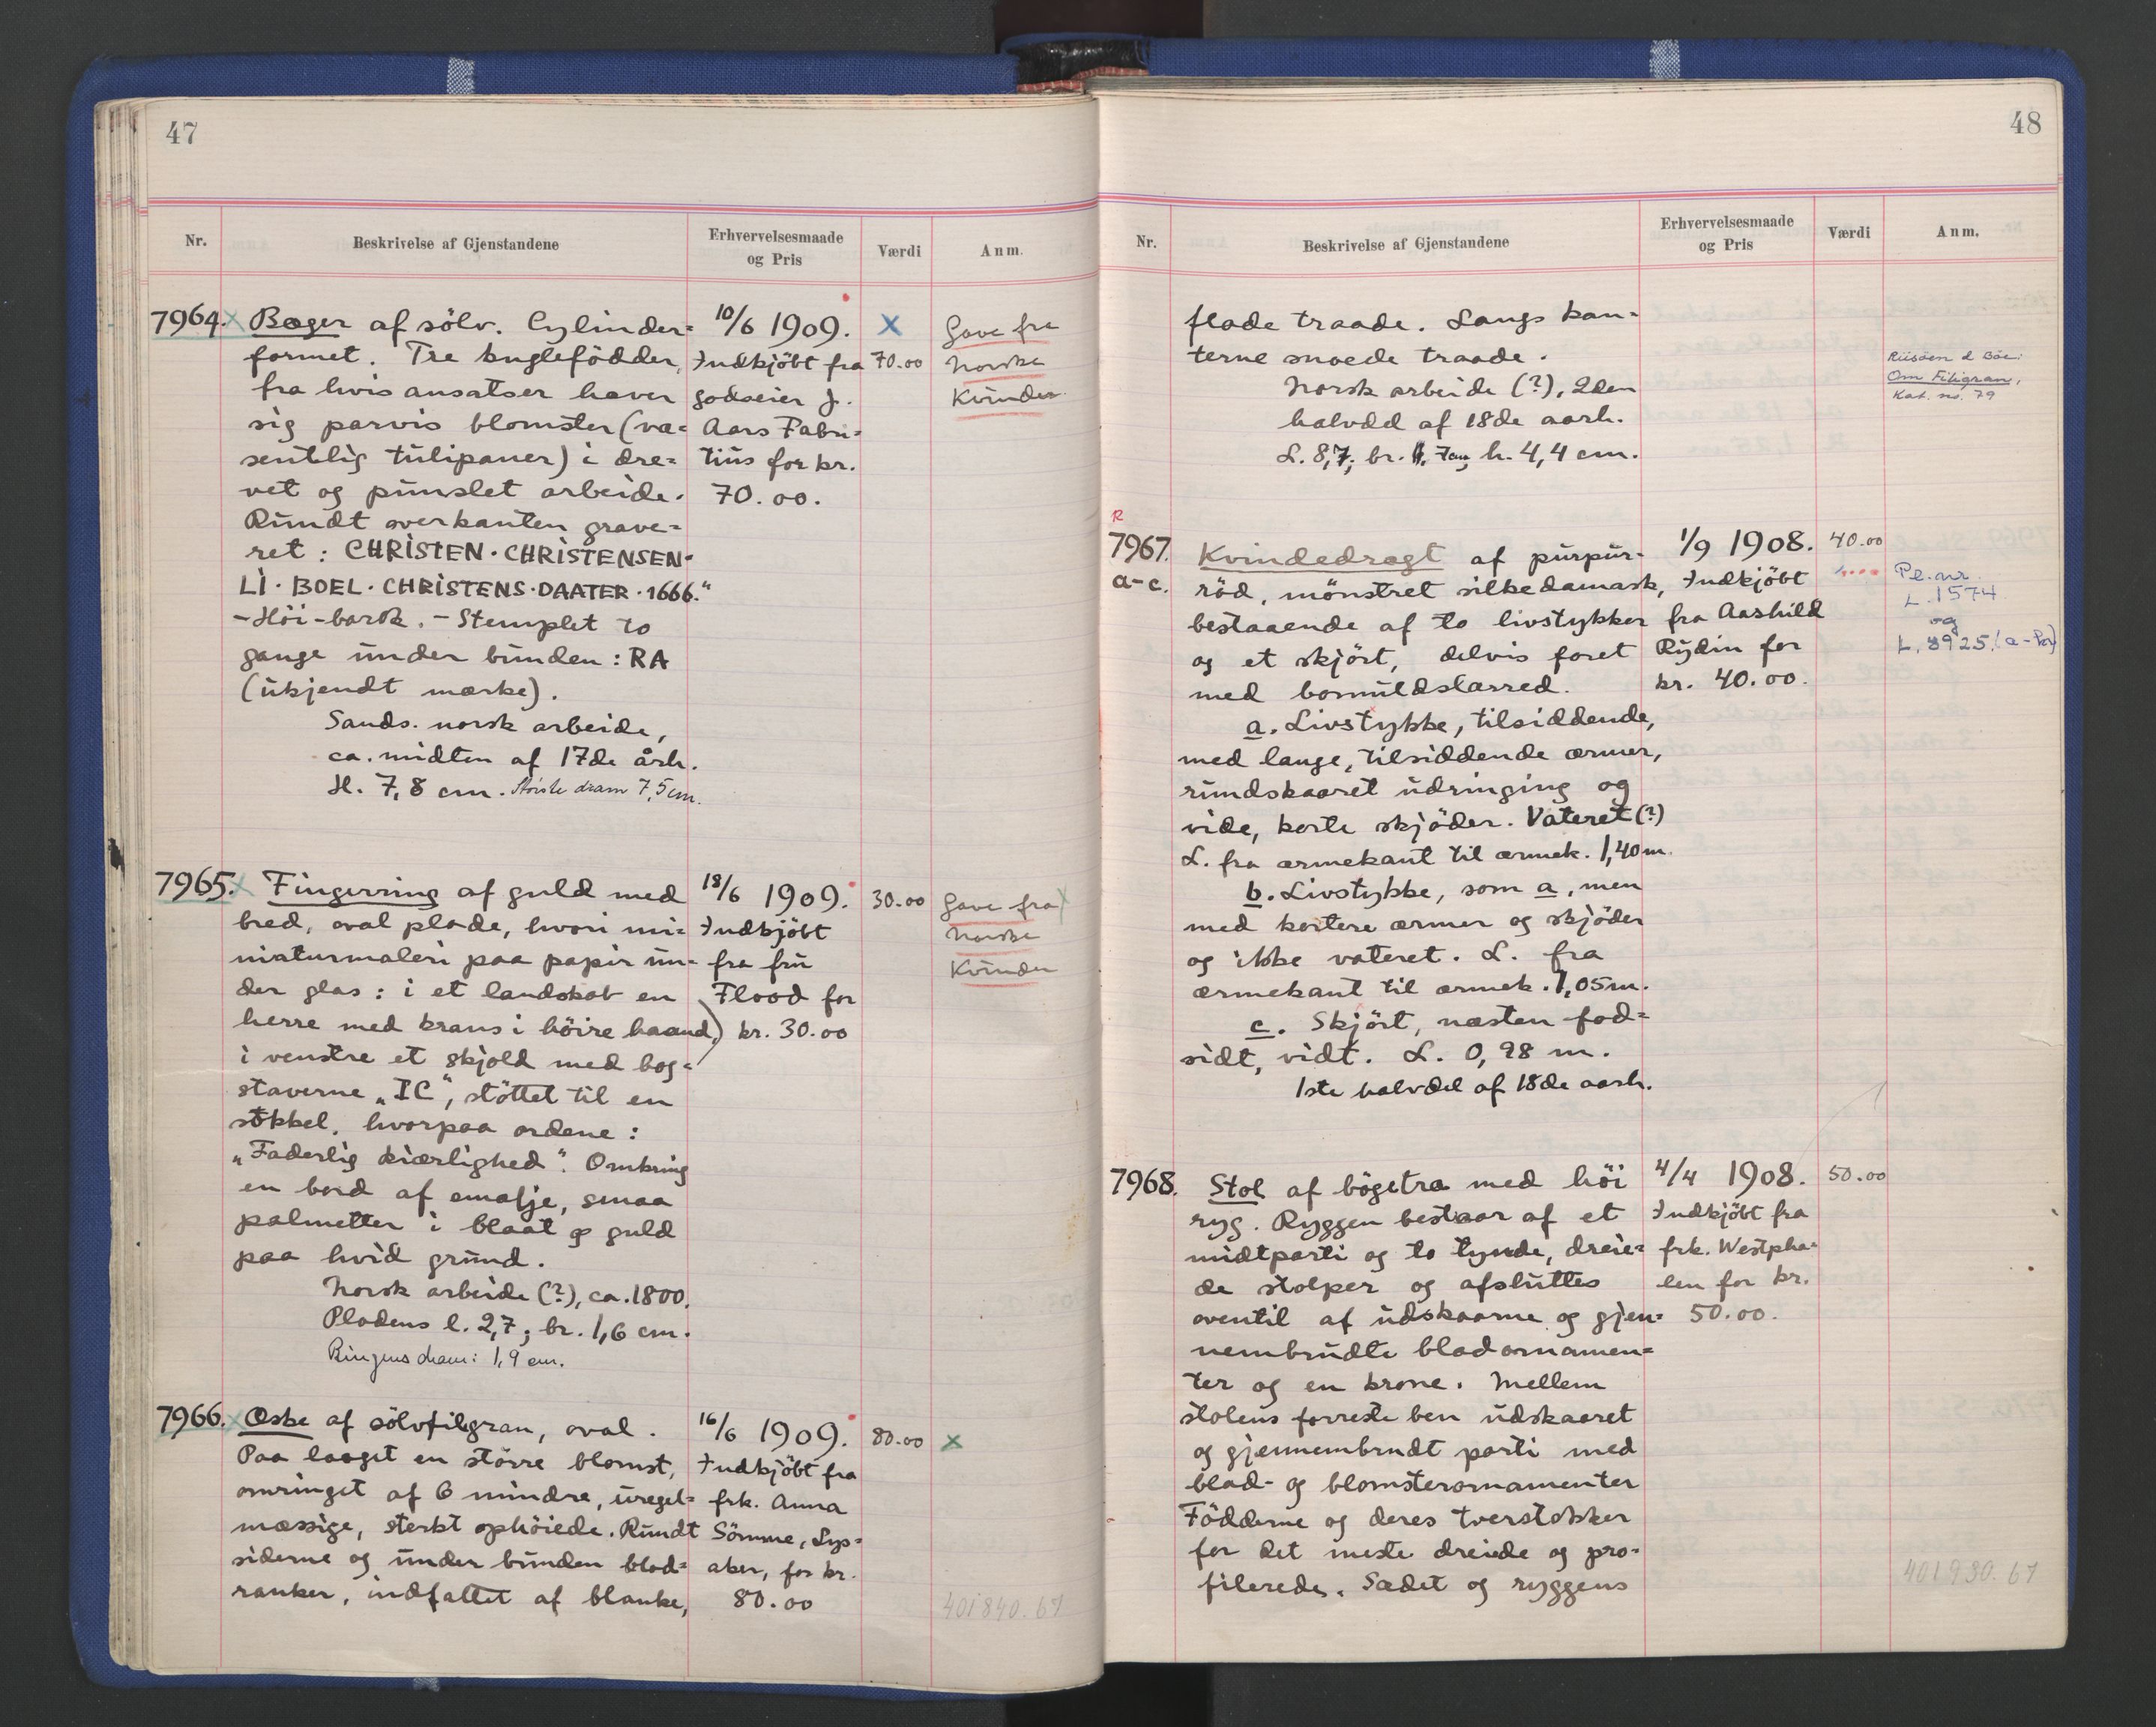 47
Nr.
Beskrivelse af Gjenstandene
Erhvervelsesmaade
og Pris
Værdi
Anm.
7964.
Bæger af sölv. Cylinder=
formet. Tre kuglefödder,
fra hvis ansatser hæver
sig parvis blomster (væ=
sentlig tulipaner) i dre=
vet og punslet arbeide.
Rundt overkanten grave=
ret: CHRISTEN · CHRISTENSEN ·
LI · BOEL · CHRISTENS · DAATER · 1666."
- Höi-barok. - Stemplet to
gange under bunden: RA
(ukjendt mærke).
Sands. norsk arbeide,
ca. midten af 17de årh.
H. 7,8 cm. Störste diam 7,5 cm.
10/6 1909.
Indkjöbt fra
godseier J.
Aars Fabri=
tius for kr.
70.00.
x
70.00
Gave fra
Norske
Kvinder
7965.
Fingerring af guld med
bred, oval plade, hvori mi=
niaturmaleri paa papir un=
der glas: i et landskab en
herre med krans i höire haand,
i venstre et skjold med bog=
staverne „IC", stöttet til en
sökkel, hvorpaa ordene:
„Faderlig kiærlighed". Omkring
en bord af emalje, smaa
palmetter i blaat og guld
paa hvid grund.
Norsk arbeide (?), ca. 1800.
Pladens l. 2,7; br. 1,6 cm.
Ringens diam: 1,9 cm.
18/6 1909.
Indkjöbt
fra fru
Flood for
kr. 30.00
30.00
Gave fra
Norske
Kvinder
7966.
Æske af sölvfiligran, oval.
Paa laaget en större blomst,
omringet af 6 mindre, uregel=
mæssige, sterkt ophöiede. Rundt
siderne og under bunden blad=
ranker, indfattet af blanke,
16/6 1909.
Indkjöbt fra
frk. Anna
Sömme, Lys=
aker, for kr.
80.00
80.00
x
401840.67
48
Nr.
Beskrivelse af Gjenstandene
Erhvervelsesmaade
og Pris
Værdi
Anm.
flade traade. Langs kan=
terne snoede traade.
Norsk arbeide (?), 2den
halvdel af 18de aarh.
L. 8,7; br. 7 cm, h. 4,4 cm.
Riisöen & Böe:
Om Filigran,
Kat. no. 79
R
7967.
a-c.
Kvindedragt af purpur=
röd, mönstret silkedamask,
bestaaende af to livstykker
og et skjört, delvis foret
med bomuldslærred.
a. Livstykke, tilsiddende,
med lange, tilsiddende ærmer,
rundskaaret udringing og
vide, korte skjöder. Vateret (?)
L. fra ærmekant til ærmek. 1,40 m.
b. Livstykke, som a, men
med kortere ærmer og skjöder
og ikke vateret. L. fra
ærmekant til ærmek. 1,05 m.
c. Skjört, næsten fod=
sidt, vidt. L. 0,98 m.
1ste halvdel af 18de aarh.
1/9 1908.
Indkjöbt
fra Aashild
Rydin for
kr. 40.00.
40.00
Pl. nr.
L. 1574
og
L. 8925
7968.
Stol af bögetræ med höi
ryg. Ryggen bestaar af et
midtparti og to tynde, dreie=
de stolper og afsluttes
oventil af udskaarne og gjen=
nembrudte bladornamen=
ter og en krone. Mellem
stolens forreste ben udskaaret
og gjennembrudt parti med
blad- og blomsterornamenter
Födderne og deres tverstokker
for det meste dreiede og pro=
filerede. Sædet og ryggens
4/4 1908.
Indkjöbt fra
frk. Westpha=
len for kr.
50.00.
50.00
401930.67